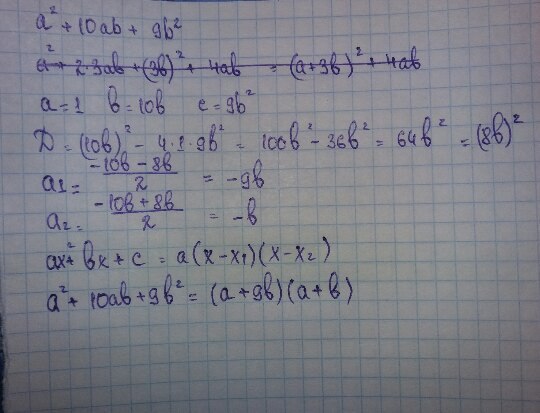 a² + 10ab + 9b²
a² + 2·3ab + (3b)² + 4ab = (a+3b)² + 4ab
a = 1 b = 10b c = 9b²
D = (10b)² - 4·1·9b² = 100b² - 36b² = 64b² = (8b)²
a₁ = (-10b - 8b)/2 = -9b
a₂ = (-10b + 8b)/2 = -b
ax² + bx + c = a(x-x₁)(x-x₂)
a² + 10ab + 9b² = (a+9b)(a+b)